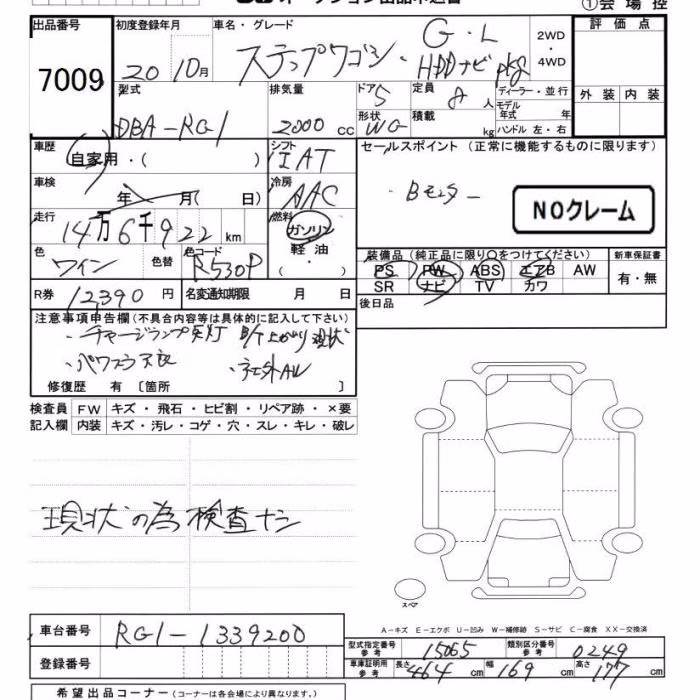 ①会場控
出品番号 初度登録年月 車名・グレード 2WD・4WD 評価点
7009 20 10月 ステップワゴン・G・L HDDナビpkg
外装 内装
型式 排気量 ドア 5 定員 8 人 ディーラー・並行
DBA-RG1 2000 cc 形状 WG 積載 kg モデル年式 年 ハンドル 左・右
車歴 自家用・( ) シフト IAT セールスポイント (正常に機能するものに限ります)
車検 年 月( 日) 冷房 AAC ・Bモニター NOクレーム
走行 14万6千922 km 燃料 ガソリン 軽油・
色 ワイン 色替 色コード R530P 装備品(純正品に限り○をつけてください) 新車保証書
PS PW ABS エアB AW 有・無
SR ナビ TV カワ
R券 12,390 円 名変通知期限 月 日 後日品
注意事項申告欄(不具合内容等は具体的に記入して下さい)
・チャージランプ点灯 B/T上がり現状
・パワステ不良 ・社外AW
修復歴 有 〔箇所 〕
検査員 FW キズ・飛石・ヒビ割・リペア跡・×要
記入欄 内装 キズ・汚レ・コゲ・穴・スレ・キレ・破レ
現状の為検査ナシ
スペア
A-キズ E-エクボ U-凹み W-補修跡 S-サビ C-腐食 XX-交換済
車台番号 RG1-1339200 型式指定番号 参考 15065 類別区分番号 参考 0249
登録番号 車庫証明用 参考 長さ 464 cm 幅 169 cm 高さ 177 cm
希望出品コーナー(コーナーは各会場により異なります。)